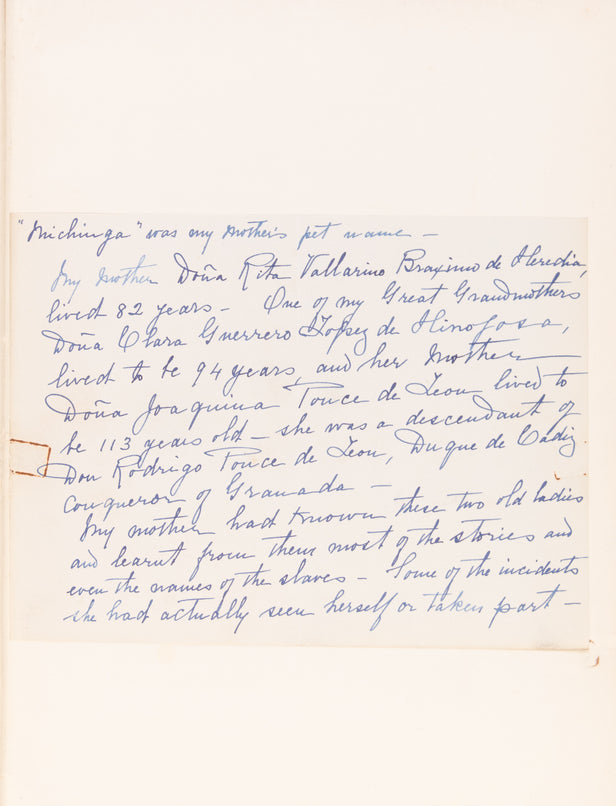 "Michinga" was my mother's pet name –
My mother Doña Rita Vallarino Braximo de Heredia,
lived 82 years – One of my Great Grandmothers
Doña Clara Guerrero Lopez de Hinojosa,
lived to be 94 years, and her Mother
Doña Joaquina Ponce de Leon lived to
be 113 years old – she was a descendant of
Don Rodrigo Ponce de Leon, Duque de Cadiz.
conqueror of Granada –
My mother had known these two old ladies
and learnt from them most of the stories and
even the names of the slaves – Some of the incidents
she had actually seen herself or taken part –